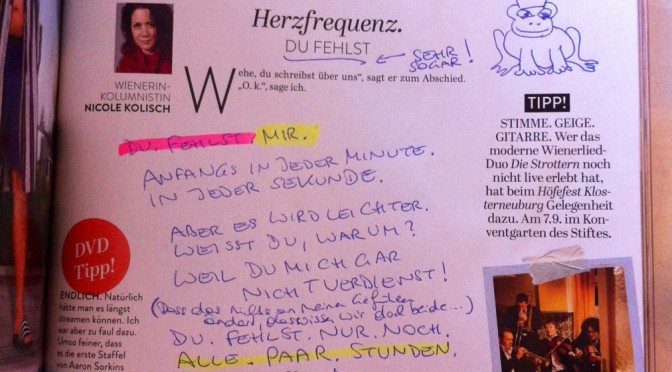 Herzfrequenz.
DU FEHLST
SEHR
SOGAR!
WIENERIN-
KOLUMNISTIN
NICOLE KOLISCH
Wehe, du schreibst über uns“, sagt er zum Abschied.
„O. k.“, sage ich.
DU. FEHLST. MIR.
ANFANGS IN JEDER MINUTE.
IN JEDER SEKUNDE.
ABER ES WIRD LEICHTER.
WEISST DU, WARUM?
WEIL DU MICH GAR
NICHT VERDIENST!
(Dass das nichts an meinen Gefühlen
ändert, das wissen wir doch beide...)
DU. FEHLST. NUR. NOCH.
ALLE. PAAR. STUNDEN.
DVD
Tipp!
ENDLICH. Natürlich
hätte man es längst
streamen können. Ich
war aber zu faul dazu.
Umso feiner, dass
es die erste Staffel
von Aaron Sorkins
TIPP!
STIMME. GEIGE.
GITARRE. Wer das
moderne Wienerlied-
Duo Die Strottern noch
nicht live erlebt hat,
hat beim Höfefest Klos-
terneuburg Gelegenheit
dazu. Am 7.9. im Kon-
ventgarten des Stiftes.